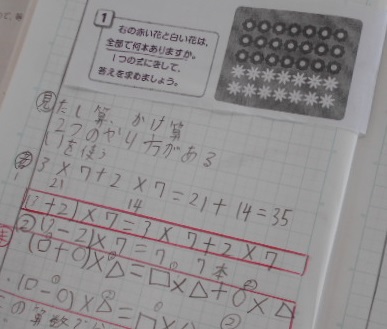 1
右の赤い花と白い花は、
全部で何本ありますか。
1つの式に表して、
答えをもとめましょう。
見 たし算、かけ算
2つのやり方がある
()を使う
考 3×7+2×7=21+14=35
21 14
(3+2)×7=3×7+2×7
② (3-2)×7=7 7本
(□+○)×△=□×△+○×△
(□-○)×△=□×
の算数